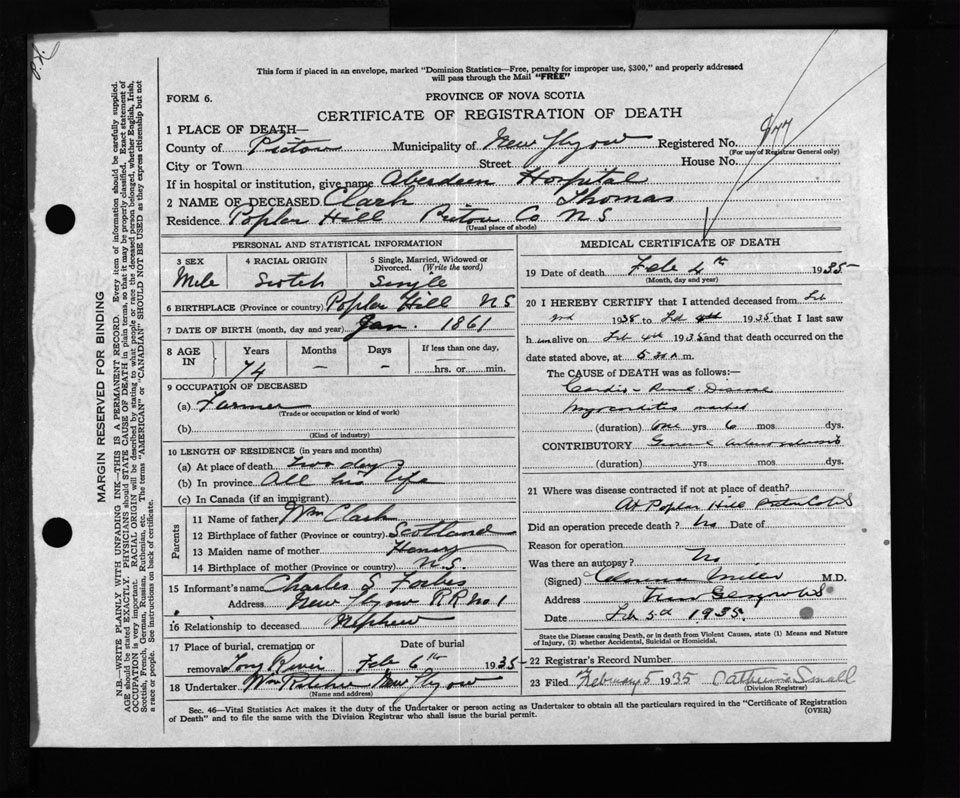 This form if placed in an envelope, marked "Dominion Statistics—Free, penalty for improper use, $300," and properly addressed
will pass through the Mail "FREE"
FORM 6.
PROVINCE OF NOVA SCOTIA
CERTIFICATE OF REGISTRATION OF DEATH
1 PLACE OF DEATH—
County of Pictou Municipality of New Glasgow Registered No. 977
(For use of Registrar General only)
City or Town Street House No.
If in hospital or institution, give name Aberdeen Hospital
2 NAME OF DECEASED Clark Thomas
Residence Poplar Hill Pictou Co N S
(Usual place of abode)
PERSONAL AND STATISTICAL INFORMATION
3 SEX 4 RACIAL ORIGIN 5 Single, Married, Widowed or
Divorced. (Write the word)
Male Scotch Single
6 BIRTHPLACE (Province or country) Poplar Hill NS
7 DATE OF BIRTH (month, day and year) Jan. 1861
8 AGE IN Years Months Days If less than one day,
74 – – hrs. or min.
9 OCCUPATION OF DECEASED
(a) Farmer
(Trade or occupation or kind of work)
(b)
(Kind of industry)
10 LENGTH OF RESIDENCE (in years and months)
(a) At place of death two days
(b) In province All his life
(c) In Canada (if an immigrant)
Parents
11 Name of father Wm Clark
12 Birthplace of father (Province or country) Scotland
13 Maiden name of mother Henry
14 Birthplace of mother (Province or country) N.S.
15 Informant's name Charles S Forbes
Address New Glasgow RR no 1
16 Relationship to deceased Nephew
17 Place of burial, cremation or Date of burial
removal Tony River Feb 6th 1935
18 Undertaker Wm Ritchie New Glasgow
(Name and address)
MEDICAL CERTIFICATE OF DEATH
19 Date of death Feb 4th 1935
(Month, day and year)
20 I HEREBY CERTIFY that I attended deceased from Feb
1935 to Feb 4th 1935 that I last saw
h im alive on Feb 4th 1935 and that death occurred on the
date stated above, at 5 a m.
The CAUSE of DEATH was as follows:—
Cardio-Renal Disease
Myocarditis marked
(duration) One yrs 6 mos. dys.
CONTRIBUTORY General Arteriosclerosis
(duration) yrs. mos. dys.
21 Where was disease contracted if not at place of death?
At Poplar Hill Pictou Co NS
Did an operation precede death? No Date of
Reason for operation
Was there an autopsy? No
(Signed) Miller M.D.
Address New Glasgow NS
Date Feb 5th 1935
State the Disease causing Death, or in death from Violent Causes, state (1) Means and Nature
of Injury, (2) whether Accidental, Suicidal or Homicidal.
22 Registrar's Record Number
23 Filed February 5 1935 Catherine Small
(Division Registrar)
Sec. 46—Vital Statistics Act makes it the duty of the Undertaker or person acting as Undertaker to obtain all the particulars required in the "Certificate of Registration
of Death" and to file the same with the Division Registrar who shall issue the burial permit. (OVER)
MARGIN RESERVED FOR BINDING
N.B.—WRITE PLAINLY WITH UNFADING INK—THIS IS A PERMANENT RECORD. Every item of information should be carefully supplied.
AGE should be stated EXACTLY. PHYSICIANS should STATE CAUSE OF DEATH in plain terms, so that it may be properly classified. Exact statement of
OCCUPATION is very important. RACIAL ORIGIN will be described by stating to what people or race the deceased person belonged, whether English, Irish,
Scottish, French, German, Russian, Ruthenian, etc. The terms "AMERICAN" or "CANADIAN" SHOULD NOT BE USED as they express citizenship but not
a race or people. See instructions on back of certificate.